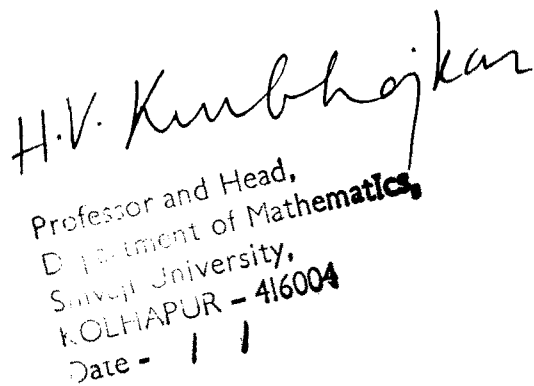 H.V. Kumbhojkar
Professor and Head,
Department of Mathematics,
Shivaji University,
KOLHAPUR - 416004
Date - / /